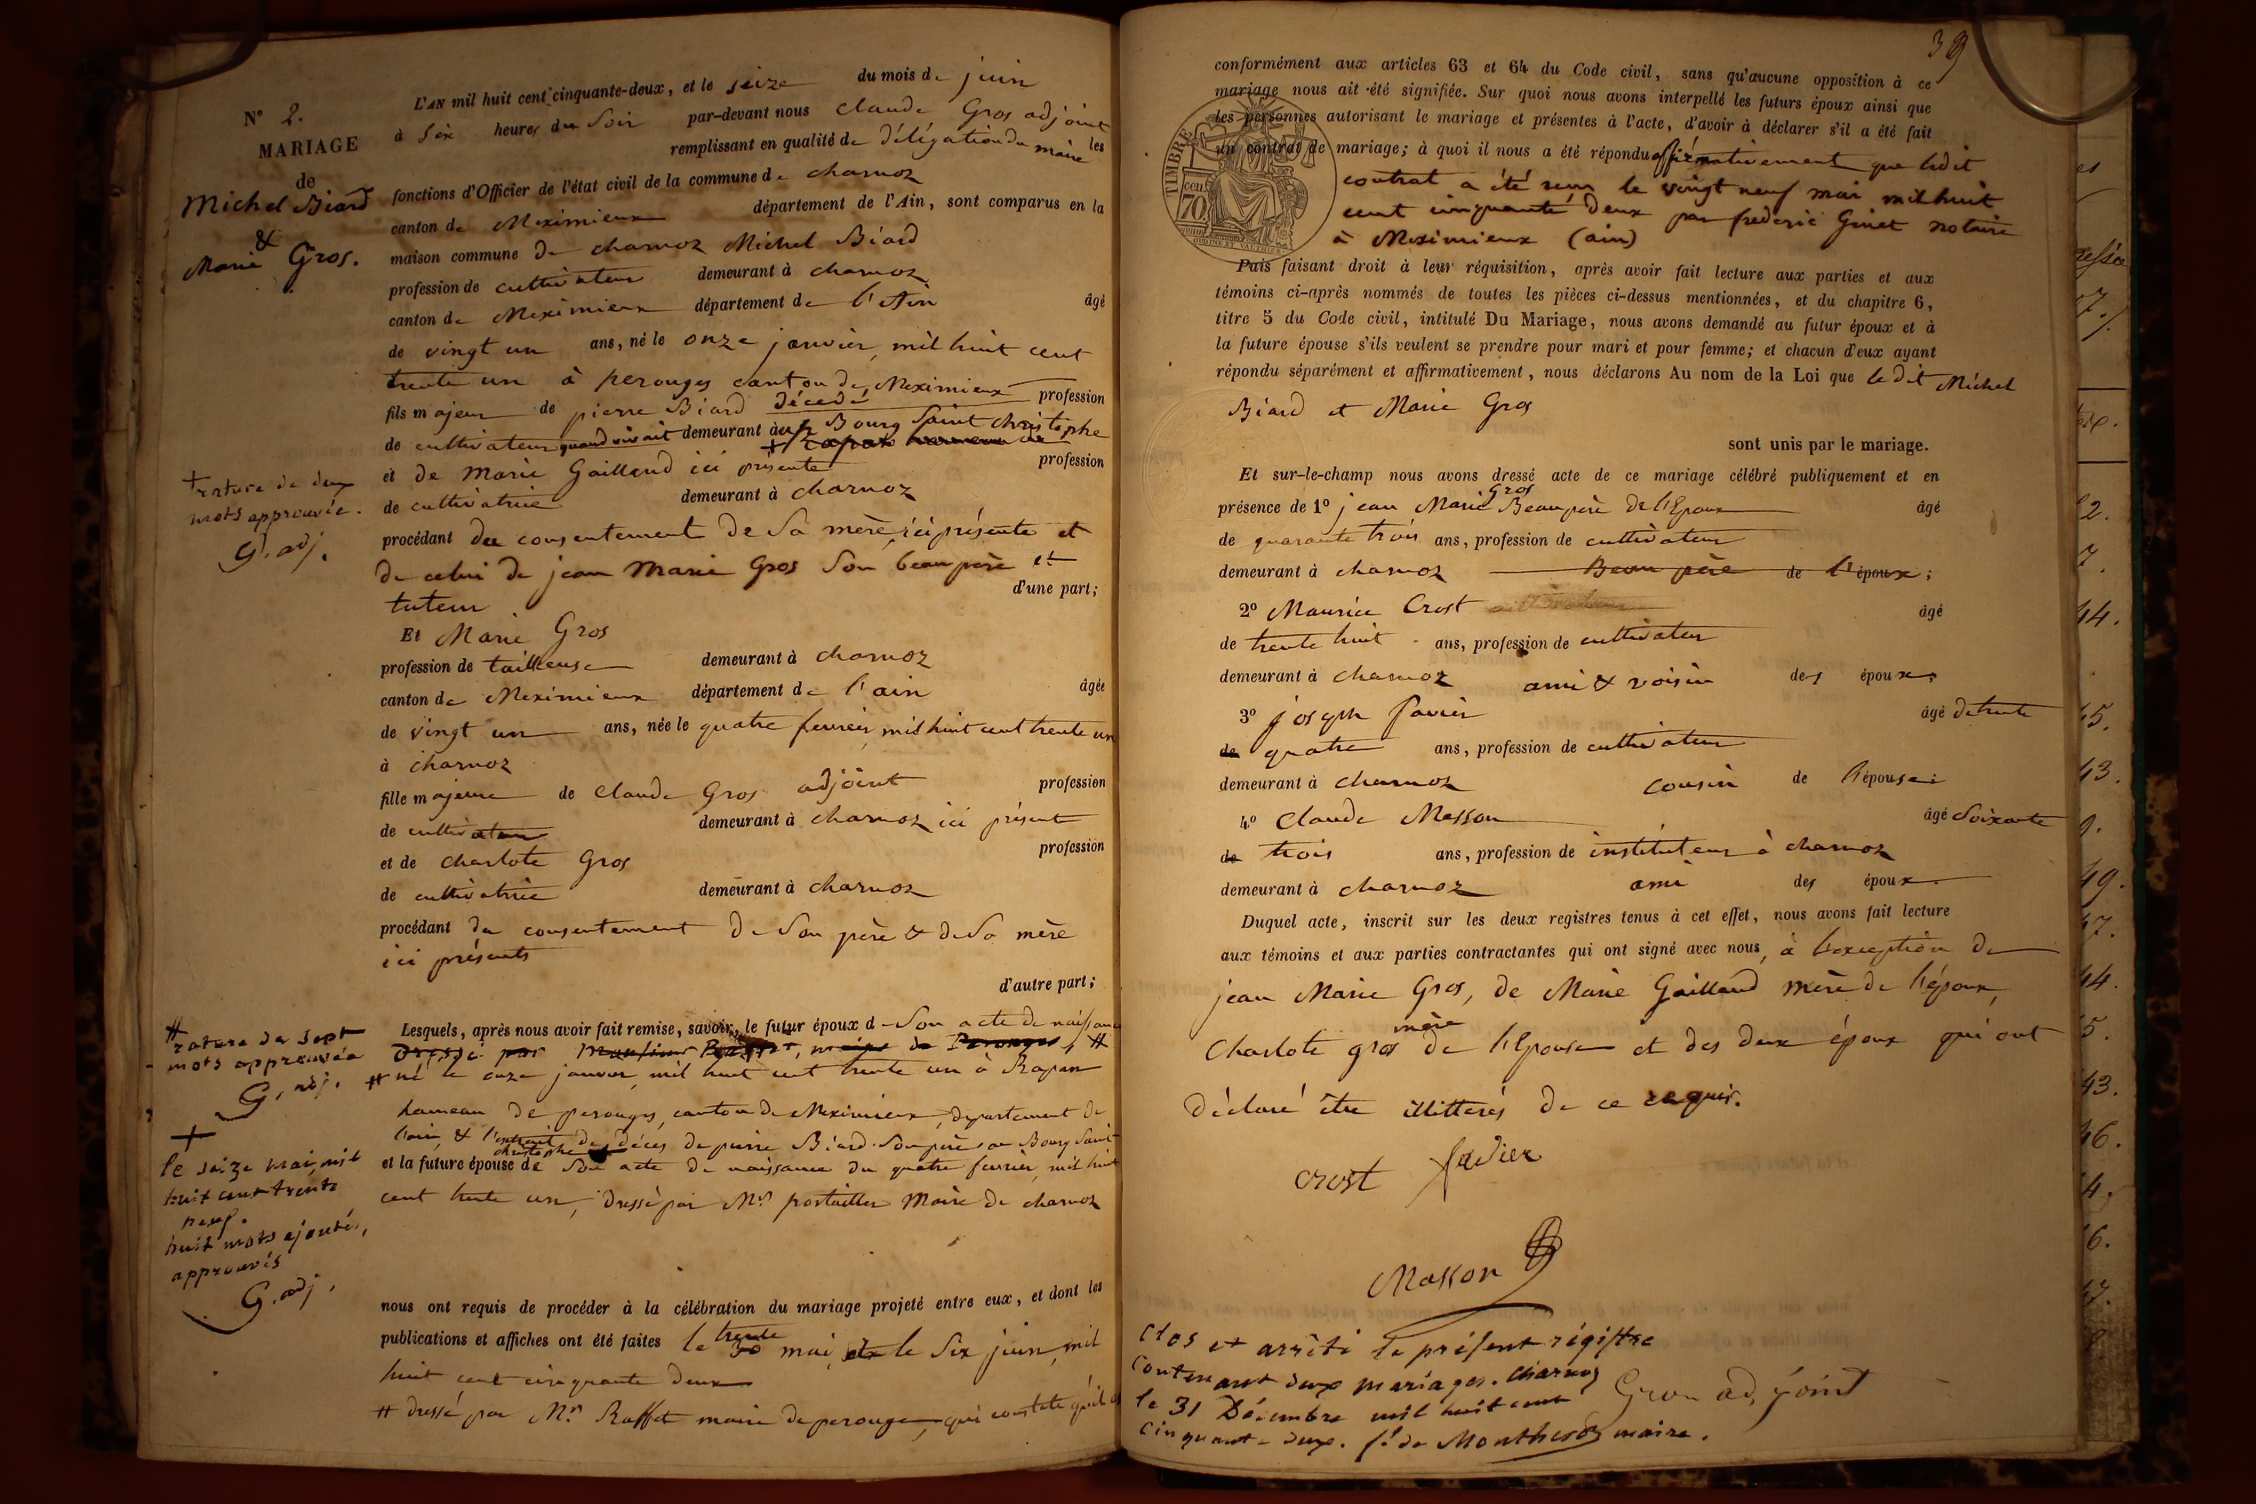 N° 2.
MARIAGE
de
Michel Biard
&
Marie Gros.
L'AN mil huit cent cinquante-deux, et le seize du mois de juin
à six heures du soir par-devant nous claude Gros adjoint
remplissant en qualité de délégation du maire les
fonctions d'Officier de l'état civil de la commune de charnoz
canton de Meximieux département de l'Ain, sont comparus en la
maison commune de charnoz Michel Biard
profession de cultivateur demeurant à charnoz
canton de Meximieux département de l'Ain âgé
de vingt un ans, né le onze janvier mil huit cent
trente un à perouges canton de Meximieux profession
fils majeur de pierre Biard décédé
de cultivateur quand vivait demeurant à Bourg Saint christophe
et de marie Gailland ici présente profession
de cultivatrice demeurant à charnoz
+ rature de deux
mots approuvée.
G. adj.
procédant du consentement de sa mère ici présente et
de celui de jean marie Gros son beau père et
tuteur d'une part;
Et Marie Gros
profession de tailleuse demeurant à charnoz
canton de Meximieux département de l'ain âgée
de vingt un ans, née le quatre fevrier mil huit cent trente un
à charnoz
fille majeure de claude Gros adjoint profession
de cultivateur demeurant à charnoz ici présent
et de charlote Gros profession
de cultivatrice demeurant à charnoz
procédant du consentement de son père & de sa mère
ici présents
d'autre part;
Lesquels, après nous avoir fait remise, savoir, le futur époux de son acte de naissance
dressé par maire de Perouges, #
# né le onze janvier mil huit cent trente un à Rapan
hameau de perouges, canton de Meximieux, departement de
l'ain, & l'extrait de décès de pierre Biard son père au Bourg Saint
christophe
et la future épouse de son acte de naissance du quatre fevrier mil huit
cent trente un, dressé par Mr. portailler Maire de charnoz
# rature de sept
mots approuvée
G. adj.
+
le seize mai mil
huit cent trente
neuf.
huit mots ajoutés,
approuvés
G. adj.
nous ont requis de procéder à la célébration du mariage projeté entre eux, et dont les
publications et affiches ont été faites le trente 30 mai, et le six juin mil
huit cent cinquante deux
# dressé par Mr. Raffet maire de perouge, qui constate qu'il est
39
conformément aux articles 63 et 64 du Code civil, sans qu'aucune opposition à ce
mariage nous ait été signifiée. Sur quoi nous avons interpellé les futurs époux ainsi que
les personnes autorisant le mariage et présentes à l'acte, d'avoir à déclarer s'il a été fait
un contrat de mariage; à quoi il nous a été répondu affirmativement que ledit
contrat a été reçu le vingt neuf mai mil huit
cent cinquante deux par frederic Ginet notaire
à Meximieux (ain)
TIMBRE
cen.
70
Puis faisant droit à leur réquisition, après avoir fait lecture aux parties et aux
témoins ci-après nommés de toutes les pièces ci-dessus mentionnées, et du chapitre 6,
titre 5 du Code civil, intitulé Du Mariage, nous avons demandé au futur époux et à
la future épouse s'ils veulent se prendre pour mari et pour femme; et chacun d'eux ayant
répondu séparément et affirmativement, nous déclarons Au nom de la Loi que le dit Michel
Biard et Marie Gros
sont unis par le mariage.
Et sur-le-champ nous avons dressé acte de ce mariage célébré publiquement et en
présence de 1° jean Marie Gros Beau père de l'Epoux âgé
de quarante trois ans, profession de cultivateur
demeurant à charnoz Beau père de l'époux;
2° Maurice Crost âgé
de trente huit ans, profession de cultivateur
demeurant à charnoz ami & voisin des époux;
3° joseph Favier âgé de trente
de quatre ans, profession de cultivateur
demeurant à charnoz cousin de l'épouse;
4° Claude Masson âgé soixante
de trois ans, profession de instituteur à charnoz
demeurant à charnoz ami des époux.
Duquel acte, inscrit sur les deux registres tenus à cet effet, nous avons fait lecture
aux témoins et aux parties contractantes qui ont signé avec nous, à l'exception de
jean Marie Gros, de Marie Gailland mère de l'époux,
Charlote gros mère de l'Epouse et des deux époux qui ont
déclaré être illitterés de ce requis.
crost favier
Masson
Clos et arrêté le présent régistre
contenant deux mariages. Charnoz
le 31 Décembre mil huit cent
cinquante deux. maire.
Gros adjoint